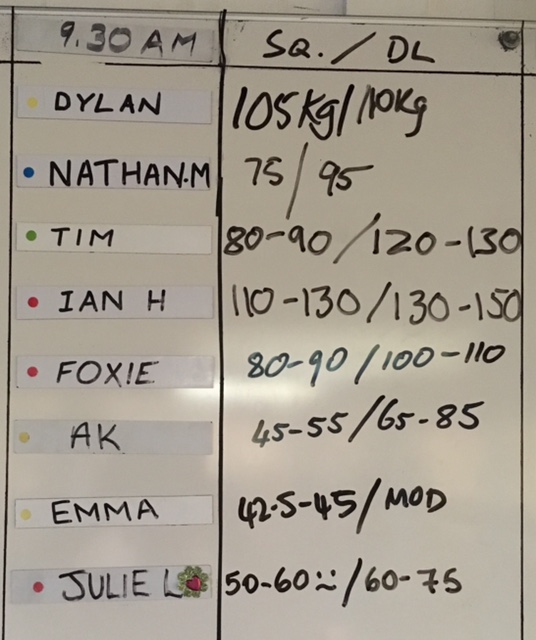 9.30 AM SQ. / DL
DYLAN 105kg/110kg
NATHAN.M 75/95
TIM 80-90/120-130
IAN H 110-130/130-150
FOXIE 80-90/100-110
AK 45-55/65-85
EMMA 42.5-45/MOD
JULIE L 50-60 /60-75